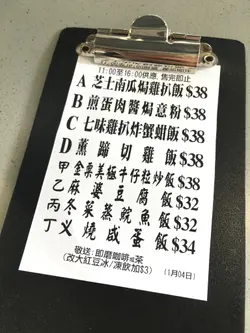 11:00至16:00供應，售完即止
A 芝士南瓜焗雞扒飯 $38
B 煎蛋肉醬焗意粉 $38
C 七味雞扒炸蟹蚶飯 $38
D 薰蹄切雞飯 $38
甲 金栗美極牛仔粒炒飯 $38
乙 麻婆豆腐飯 $32
丙 冬菜蒸鯇魚飯 $32
丁 义燒咸蛋飯 $34
敬送：即磨咖啡或茶
(改大紅豆冰/凍飲加$3)
(1月04日)